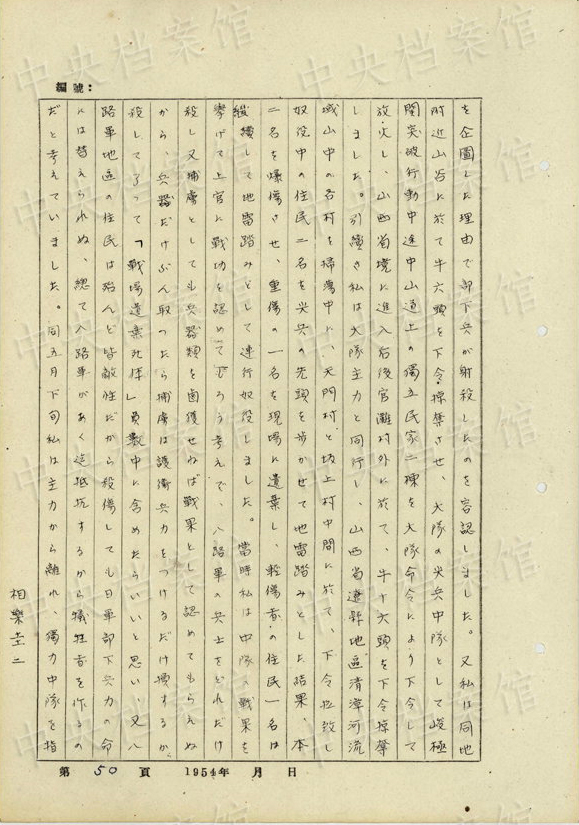 編號：
を企圖した理由で部下兵が射殺したのを容認しました。又私は同地
附近山谷に於て牛六頭を下令掠奪させ、大隊の尖兵中隊として峻極
関突破行動中途中山道上の獨立民家二棟を大隊命令により下令して
放火し、山西省境に進入后後官灘村外に於て、牛十六頭を下令掠奪
しました。引續き私は大隊主力と同行し、山西省遼縣地區清漳河流
域山中の各村を掃蕩中に、天門村と坂上村中間に於て、下令拉致し
奴役中の住民二名を尖兵の先頭を歩かせて地雷踏みとした結果、本
二名を爆傷させ、重傷の一名を現場に遺棄し、軽傷者の住民一名は
継續して地雷踏みとして連行奴役しました。 當時私は中隊の戦果を
挙げて上官に戦功を認めて貰ろう考えで、八路軍の兵士をどれだけ
殺し又捕虜としても兵器類を鹵獲せねば戦果として認めてもらえぬ
から、兵器だけぶん取ったら捕虜は護衛兵力をつけるだけ損するから
殺して了って「戦場遺棄死体」員数中に含めたらいいと思い、又八
路軍地區の住民は殆んど皆敵性だから殺傷しても日軍部下兵力の命
には替えられぬ、總て八路軍があく迄抵抗するから犠牲者を作るの
だと考えていました。同五月下旬私は主力から離れ、獨力中隊を指
相樂圭二
第 50 頁 1954年 月 日
中央档案馆